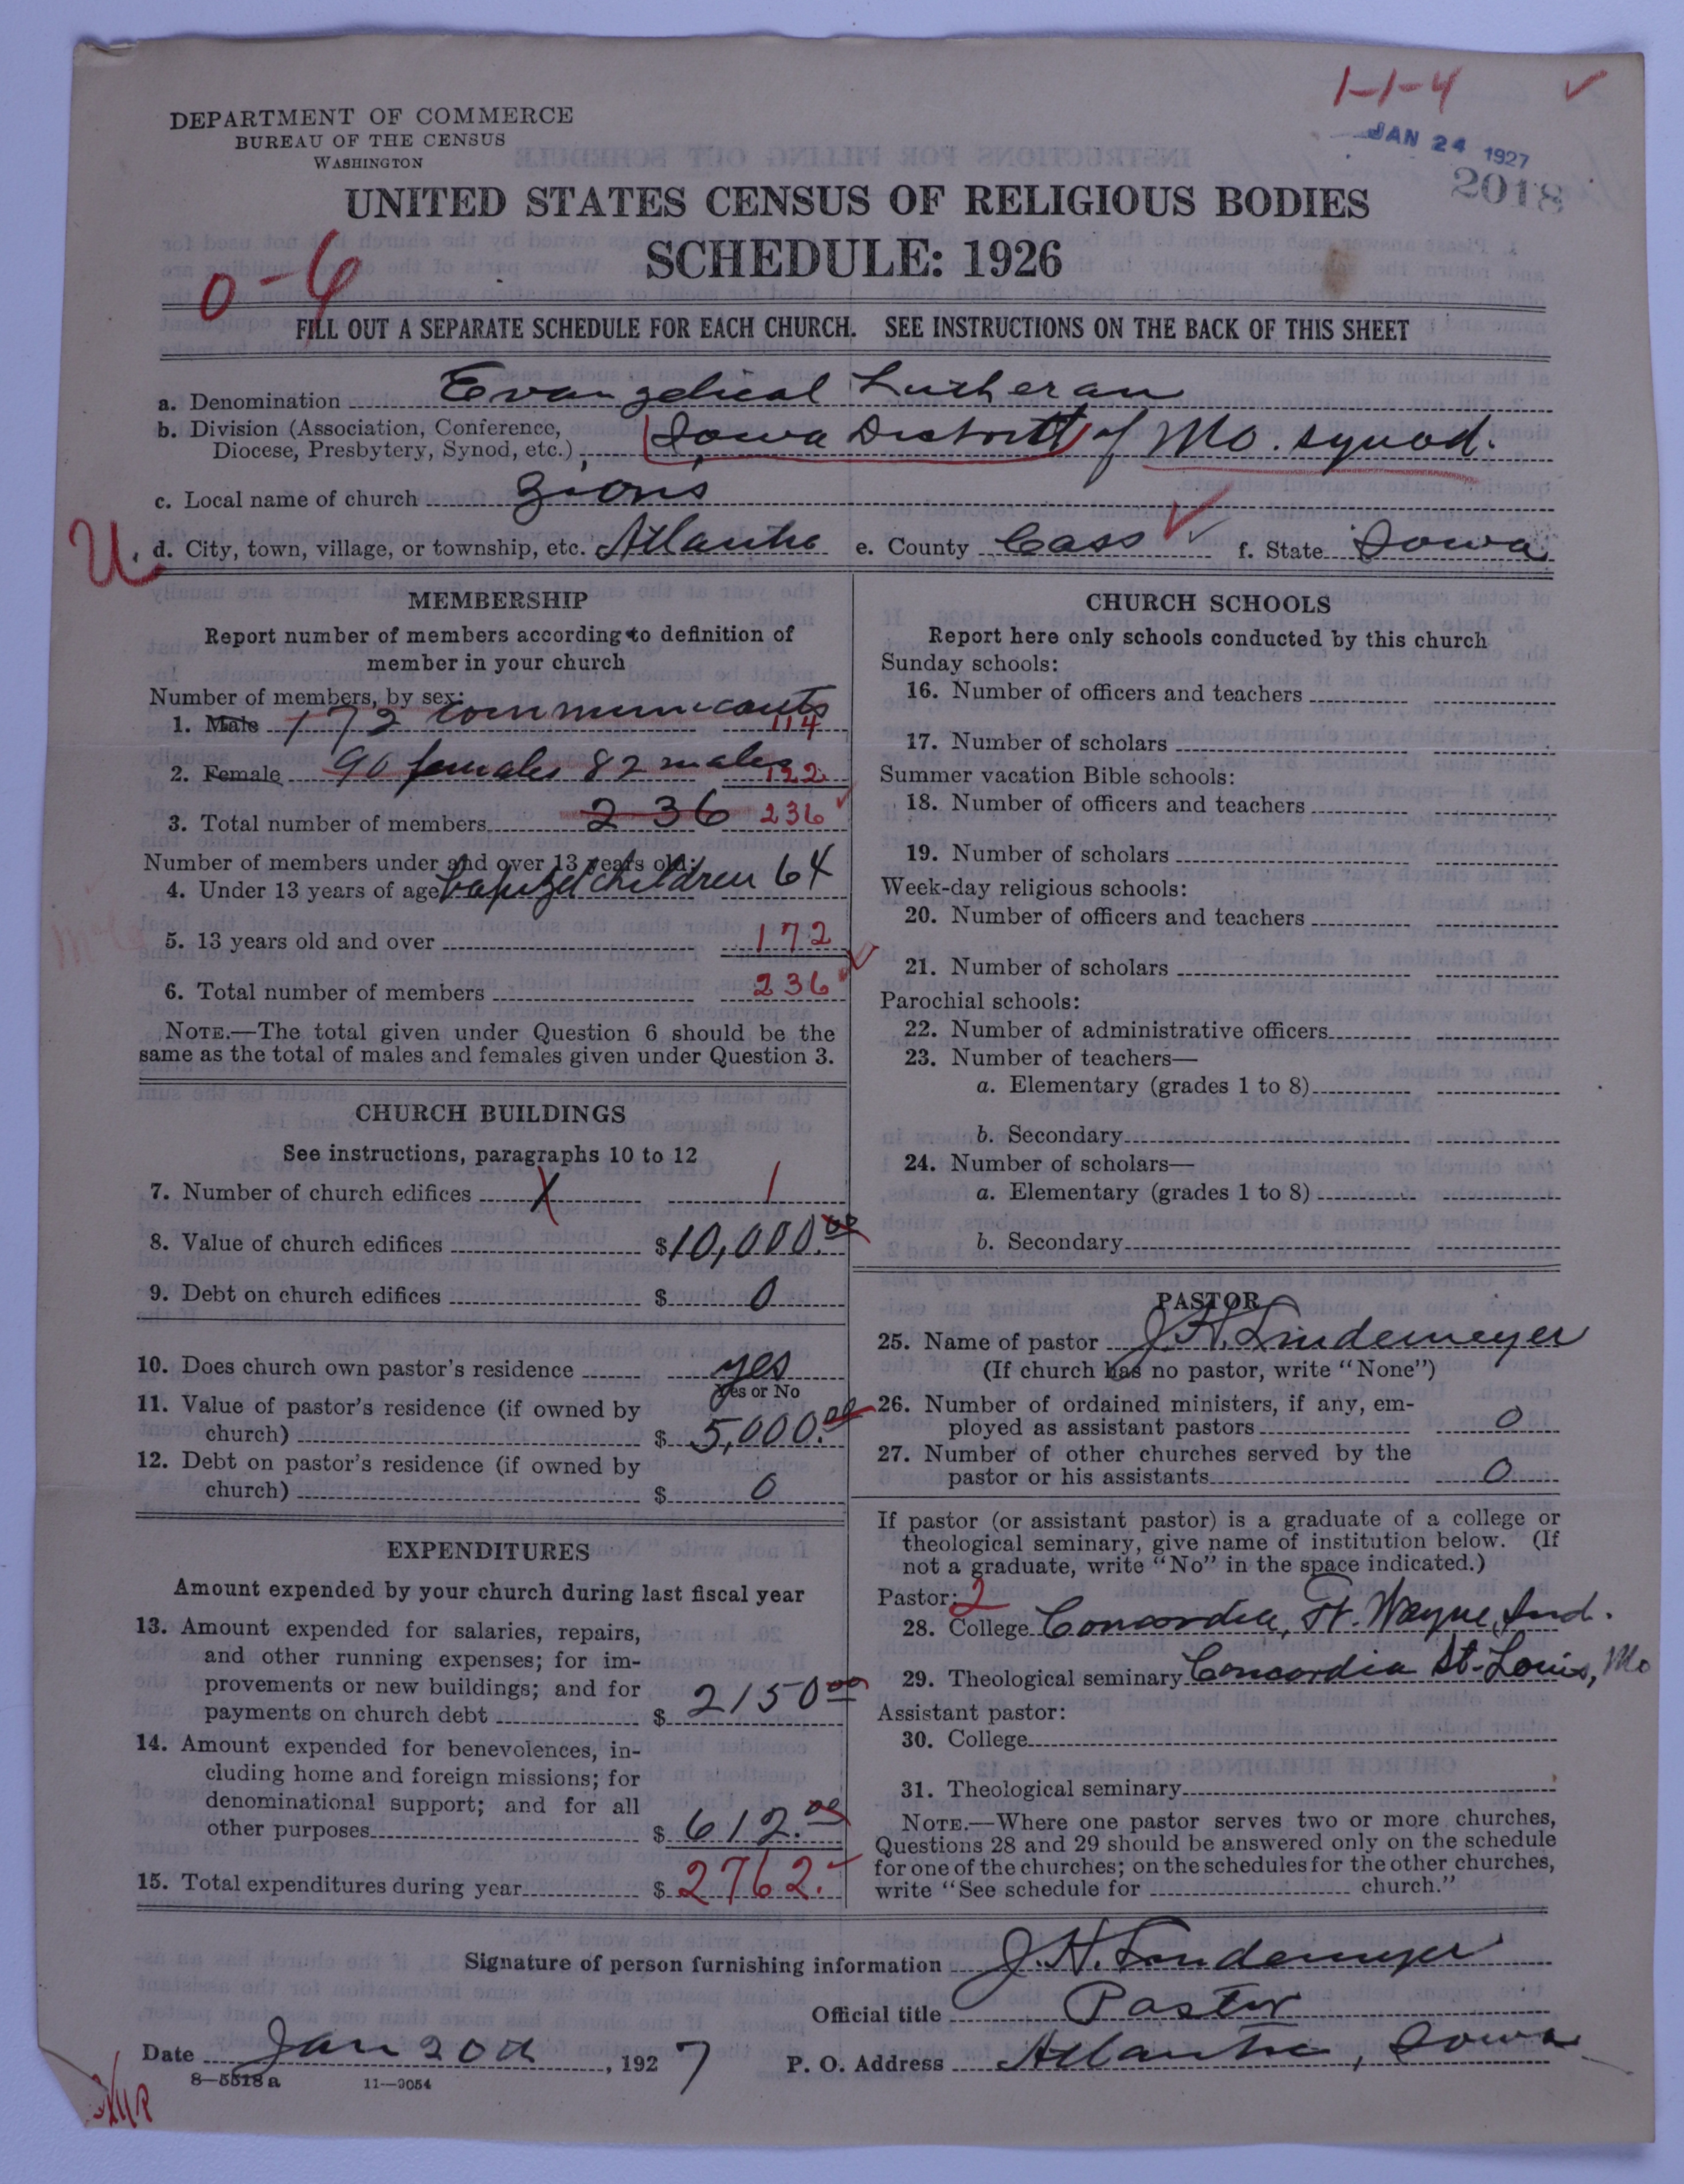 1-1-4
DEPARTMENT OF COMMERCE
BUREAU OF THE CENSUS
WASHINGTON
JAN 24 1927
2018
UNITED STATES CENSUS OF RELIGIOUS BODIES
SCHEDULE: 1926
FILL OUT A SEPARATE SCHEDULE FOR EACH CHURCH. SEE INSTRUCTIONS ON THE BACK OF THIS SHEET
a. Denomination Evangelical Lutheran
b. Division (Association, Conference,
Diocese, Presbytery, Synod, etc.) Iowa District of Mo. Synod.
c. Local name of church Zions
U. d. City, town, village, or township, etc. Atlantic e. County Cass f. State Iowa
MEMBERSHIP
Report number of members according to definition of
member in your church
Number of members, by sex:
1. Male 172 communicants 114
2. Female 90 females 82 males 122
3. Total number of members 236 236
Number of members under and over 13 years old:
4. Under 13 years of age baptized children 64
5. 13 years old and over 172
6. Total number of members 236
NOTE.—The total given under Question 6 should be the
same as the total of males and females given under Question 3.
CHURCH BUILDINGS
See instructions, paragraphs 10 to 12
7. Number of church edifices 1
8. Value of church edifices $10,000.00
9. Debt on church edifices $ 0
10. Does church own pastor's residence yes
Yes or No
11. Value of pastor's residence (if owned by
church) $ 5,000.00
12. Debt on pastor's residence (if owned by
church) $ 0
EXPENDITURES
Amount expended by your church during last fiscal year
13. Amount expended for salaries, repairs,
and other running expenses; for im-
provements or new buildings; and for
payments on church debt $ 2150 00
14. Amount expended for benevolences, in-
cluding home and foreign missions; for
denominational support; and for all
other purposes $ 612.00
15. Total expenditures during year $ 2762.
CHURCH SCHOOLS
Report here only schools conducted by this church
Sunday schools:
16. Number of officers and teachers
17. Number of scholars
Summer vacation Bible schools:
18. Number of officers and teachers
19. Number of scholars
Week-day religious schools:
20. Number of officers and teachers
21. Number of scholars
Parochial schools:
22. Number of administrative officers
23. Number of teachers—
a. Elementary (grades 1 to 8)
b. Secondary
24. Number of scholars—
a. Elementary (grades 1 to 8)
b. Secondary
PASTOR
25. Name of pastor J. H. Lindemeyer
(If church has no pastor, write "None")
26. Number of ordained ministers, if any, em-
ployed as assistant pastors 0
27. Number of other churches served by the
pastor or his assistants 0
If pastor (or assistant pastor) is a graduate of a college or
theological seminary, give name of institution below. (If
not a graduate, write "No" in the space indicated.)
Pastor: 2
28. College Concordia, Ft. Wayne, Ind.
29. Theological seminary Concordia St. Louis, Mo
Assistant pastor:
30. College
31. Theological seminary
NOTE.—Where one pastor serves two or more churches,
Questions 28 and 29 should be answered only on the schedule
for one of the churches; on the schedules for the other churches,
write "See schedule for church."
Signature of person furnishing information J. H. Lindemeyer
Official title Pastor
Date Jan 20th, 1927 P. O. Address Atlantic, Iowa
8—5518 a 11—9054